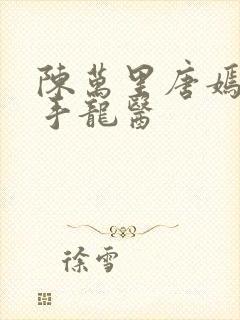 陳萬里唐嫣
手龍醫
徐雪